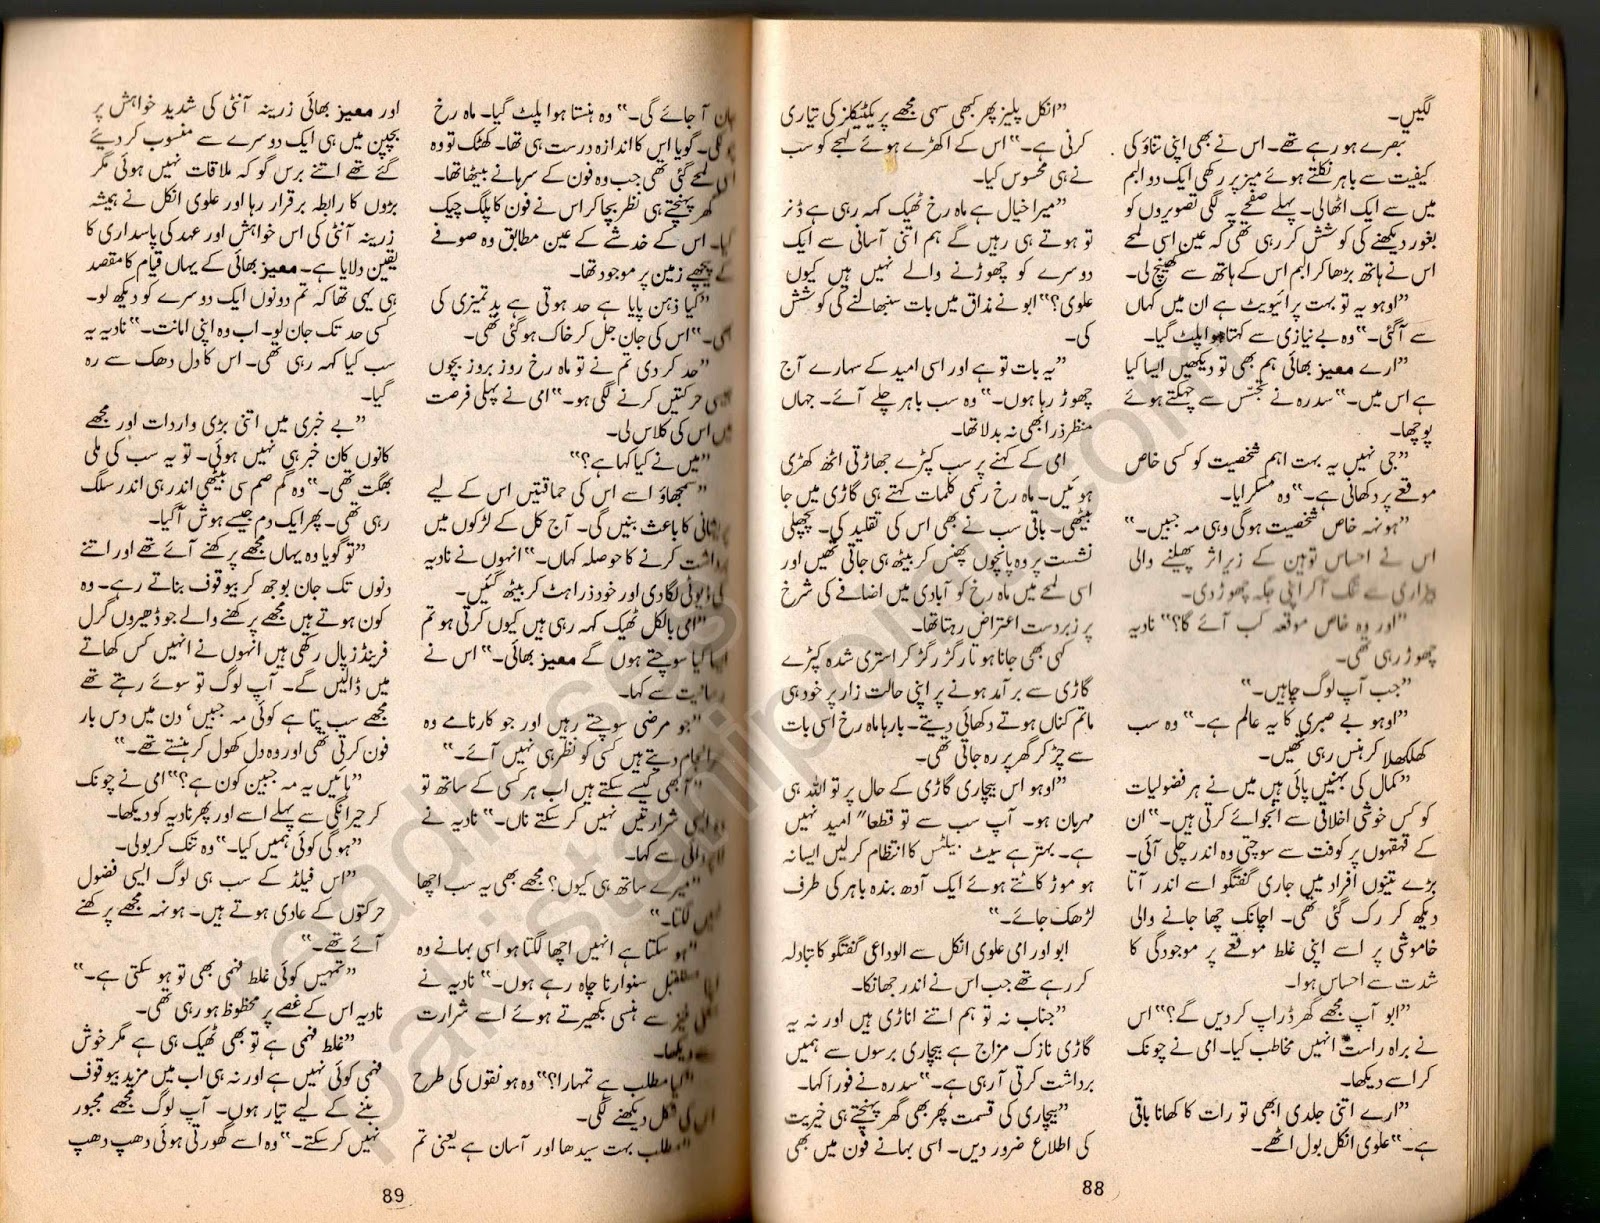 لگیں۔
تبصرے ہو رہے تھے۔ اس نے بھی اپنی تناؤ کی
کیفیت سے باہر نکلتے ہوئے میز پر رکھی ایک دو البم
میں سے ایک اٹھا لی۔ پہلے صفحے پہ لگی تصویروں کو
بغور دیکھنے کی کوشش کر رہی تھی کہ عین اسی لمحے
اس نے ہاتھ بڑھا کر البم اس کے ہاتھ سے کھینچ لی۔
”اوہو یہ تو بہت پرائیویٹ ہے ان میں کہاں
سے آ گئی۔“ وہ بے نیازی سے کہتا ہوا پلٹ گیا۔
”ارے معیز بھائی ہم بھی تو دیکھیں ایسا کیا
ہے اس میں۔“ سدرہ نے تجسّس سے چہکتے ہوئے
پوچھا۔
”جی نہیں یہ بہت اہم شخصیت کو کسی خاص
موقعے پر دکھانی ہے۔“ وہ مسکرایا۔
”ہونہہ خاص شخصیت ہو گی وہی مہ جبیں۔“
اس نے احساس توہین کے زیر اثر پھیلنے والی
بیزاری سے تنگ آ کر اپنی جگہ چھوڑ دی۔
”اور وہ خاص موقعہ کب آئے گا؟“ نادیہ
چھوڑ رہی تھی۔
”جب آپ لوگ چاہیں۔“
”اوہو بے صبری کا یہ عالم ہے۔“ وہ سب
کھلکھلا کر ہنس رہی تھیں۔
”کمال کی بہنیں پائی ہیں میں نے ہر فضولیات
کو کس خوشی اخلاقی سے انجوائے کرتی ہیں۔“ ان
کے قہقہوں پر کوفت سے سوچتی وہ اندر چلی آئی۔
بڑے تینوں افراد میں جاری گفتگو اسے اندر آتا
دیکھ کر رک گئی تھی۔ اچانک چھا جانے والی
خاموشی پر اسے اپنی غلط موقعے پر موجودگی کا
شدت سے احساس ہوا۔
”ابو آپ مجھے گھر ڈراپ کر دیں گے؟“ اس
نے براہ راست انہیں مخاطب کیا۔ امی نے چونک
کر اسے دیکھا۔
”ارے اتنی جلدی ابھی تو رات کا کھانا باقی
ہے۔“ علوی انکل بول اٹھے۔
”انکل پلیز پھر کبھی سہی مجھے پریکٹیکلز کی تیاری
کرنی ہے۔“ اس کے اکھڑے ہوئے لہجے کو سب
نے ہی محسوس کیا۔
”میرا خیال ہے ماہ رخ ٹھیک کہہ رہی ہے ڈنر
تو ہوتے ہی رہیں گے ہم اتنی آسانی سے ایک
دوسرے کو چھوڑنے والے نہیں ہیں کیوں
علوی؟“ ابو نے مذاق میں بات سنبھالنے کی کوشش
کی۔
”یہ بات تو ہے اور اسی امید کے سہارے آج
چھوڑ رہا ہوں۔“ وہ سب باہر چلے آئے۔ جہاں
منظر ذرا بھی نہ بدلا تھا۔
امی کے کہنے پر سب کپڑے جھاڑتی اٹھ کھڑی
ہوئیں۔ ماہ رخ رسمی کلمات کہتے ہی گاڑی میں جا
بیٹھی۔ باقی سب نے بھی اس کی تقلید کی۔ پچھلی
نشست پر وہ پانچوں پھنس کر بیٹھ ہی جاتی تھیں اور
اسی لمحے میں ماہ رخ کو آبادی میں اضافے کی شرح
پر زبردست اعتراض رہتا تھا۔
کہی بھی جانا ہو تا رگڑ رگڑ کر استری شدہ کپڑے
گاڑی سے برآمد ہونے پر اپنی حالت زار پر خود ہی
ماتم کناں ہوتے دکھائی دیتے۔ بارہا ماہ رخ اسی بات
سے چڑ کر گھر پر رہ جاتی تھی۔
”اوہو اس بیچاری گاڑی کے حال پر تو اللہ ہی
مہربان ہو۔ آپ سب سے تو قطعاً امید نہیں
ہے۔ بہتر ہے سیٹ بیلٹس کا انتظام کر لیں ایسا نہ
ہو موڑ کاٹتے ہوئے ایک آدھ بندہ باہر کی طرف
لڑھک جائے۔“
ابو اور امی علوی انکل سے الوداعی گفتگو کا تبادلہ
کر رہے تھے جب اس نے اندر جھانکا۔
”جناب نہ تو ہم اتنے اناڑی ہیں اور نہ یہ
گاڑی نازک مزاج ہے بیچاری برسوں سے ہمیں
برداشت کرتی آ رہی ہے۔“ سدرہ نے فوراً کہا۔
”بیچاری کی قسمت پھر بھی گھر پہنچتے ہی خیریت
کی اطلاع ضرور دیں۔ اسی بہانے فون میں بھی
88
جان آ جائے گی۔“ وہ ہنستا ہوا پلٹ گیا۔ ماہ رخ
گویا اس کا اندازہ درست ہی تھا۔ کھٹک تو وہ
لمحے گئی تھی جب وہ فون کے سرہانے بیٹھا تھا۔
گھر پہنچتے ہی نظر بچا کر اس نے فون کا پلگ چیک
کیا۔ اس کے خدشے کے عین مطابق وہ صوفے
کے پیچھے زمین پر موجود تھا۔
”کیا ذہن پایا ہے حد ہوتی ہے بدتمیزی کی
بھی۔“ اس کی جان جل کر خاک ہو گئی تھی۔
”حد کر دی تم نے تو ماہ رخ روز بروز بچوں
جیسی حرکتیں کرنے لگی ہو۔“ امی نے پہلی فرصت
میں اس کی کلاس لی۔
”میں نے کیا کہا ہے؟“
”سمجھاؤ اسے اس کی حماقتیں اس کے لیے
پریشانی کا باعث بنیں گی۔ آج کل کے لڑکوں میں
برداشت کرنے کا حوصلہ کہاں۔“ انہوں نے نادیہ
کی ڈیوٹی لگا دی اور خود ذرا ہٹ کر بیٹھ گئیں۔
”امی بالکل ٹھیک کہہ رہی ہیں کیوں کرتی ہو تم
ایسا کیا سوچتے ہوں گے معیز بھائی۔“ اس نے
رسانیت سے کہا۔
”جو مرضی سوچتے رہیں اور جو کارنامے وہ
سرانجام دیتے ہیں کسی کو نظر ہی نہیں آتے۔“
”آ بھی کیسے سکتے ہیں اب ہر کسی کے ساتھ تو
وہ ایسی شرارتیں نہیں کر سکتے ناں۔“ نادیہ نے
سے کہا۔
”میرے ساتھ ہی کیوں؟ مجھے بھی یہ سب اچھا
نہیں لگتا۔“
”ہو سکتا ہے انہیں اچھا لگتا ہو اسی بہانے وہ
اپنا مستقبل سنوارنا چاہ رہے ہوں۔“ نادیہ نے
معنی خیز سے ہنسی بکھیرتے ہوئے اسے شرارت
سے دیکھا۔
”کیا مطلب ہے تمہارا؟“ وہ ہونقوں کی طرح
اس کی شکل دیکھنے لگی۔
”مطلب بہت سیدھا اور آسان ہے یعنی تم
اور معیز بھائی زرینہ آنٹی کی شدید خواہش پر
بچپن میں ہی ایک دوسرے سے منسوب کر دیئے
گئے تھے اتنے برس گو کہ ملاقات نہیں ہوئی مگر
بڑوں کا رابطہ برقرار رہا اور علوی انکل نے ہمیشہ
زرینہ آنٹی کی اس خواہش اور عہد کی پاسداری کا
یقین دلایا ہے۔ معیز بھائی کے یہاں قیام کا مقصد
ہی یہی تھا کہ تم دونوں ایک دوسرے کو دیکھ لو۔
کسی حد تک جان لو۔ اب وہ اپنی امانت۔“ نادیہ یہ
سب کیا کہہ رہی تھی۔ اس کا دل دھک سے رہ
گیا۔
”بے خبری میں اتنی بڑی واردات اور مجھے
کانوں کان خبر ہی نہیں ہوئی۔ تو یہ سب کی ملی
بھگت تھی۔“ وہ گم صم سی بیٹھی اندر ہی اندر سلگ
رہی تھی۔ پھر ایک دم جیسے ہوش آ گیا۔
”تو گویا وہ یہاں مجھے پرکھنے آئے تھے اور اتنے
دنوں تک جان بوجھ کر بیوقوف بناتے رہے۔ وہ
کون ہوتے ہیں مجھے پرکھنے والے جو ڈھیروں گرل
فرینڈز پال رکھی ہیں انہوں نے انہیں کس کھاتے
میں ڈالیں گے۔ آپ لوگ تو سوئے رہتے تھے
مجھے سب پتا ہے کوئی مہ جبیں، دن میں دس بار
فون کرتی تھی اور وہ دل کھول کر ہنستے تھے۔“
”ہائیں یہ مہ جبیں کون ہے؟“ امی نے چونک
کر حیرانگی سے پہلے اسے اور پھر نادیہ کو دیکھا۔
”ہو گی کوئی ہمیں کیا۔“ وہ تنک کر بولی۔
”اس فیلڈ کے سب ہی لوگ ایسی فضول
حرکتوں کے عادی ہوتے ہیں۔ ہونہہ مجھے پرکھنے
آئے تھے۔“
”تمہیں کوئی غلط فہمی بھی تو ہو سکتی ہے۔“
نادیہ اس کے غصے پر محظوظ ہو رہی تھی۔
”غلط فہمی ہے تو بھی ٹھیک ہی ہے مگر خوش
فہمی کوئی نہیں ہے اور نہ ہی اب میں مزید بیوقوف
بننے کے لیے تیار ہوں۔ آپ لوگ مجھے مجبور
نہیں کر سکتے۔“ وہ اسے گھورتی ہوئی دھپ دھپ
89